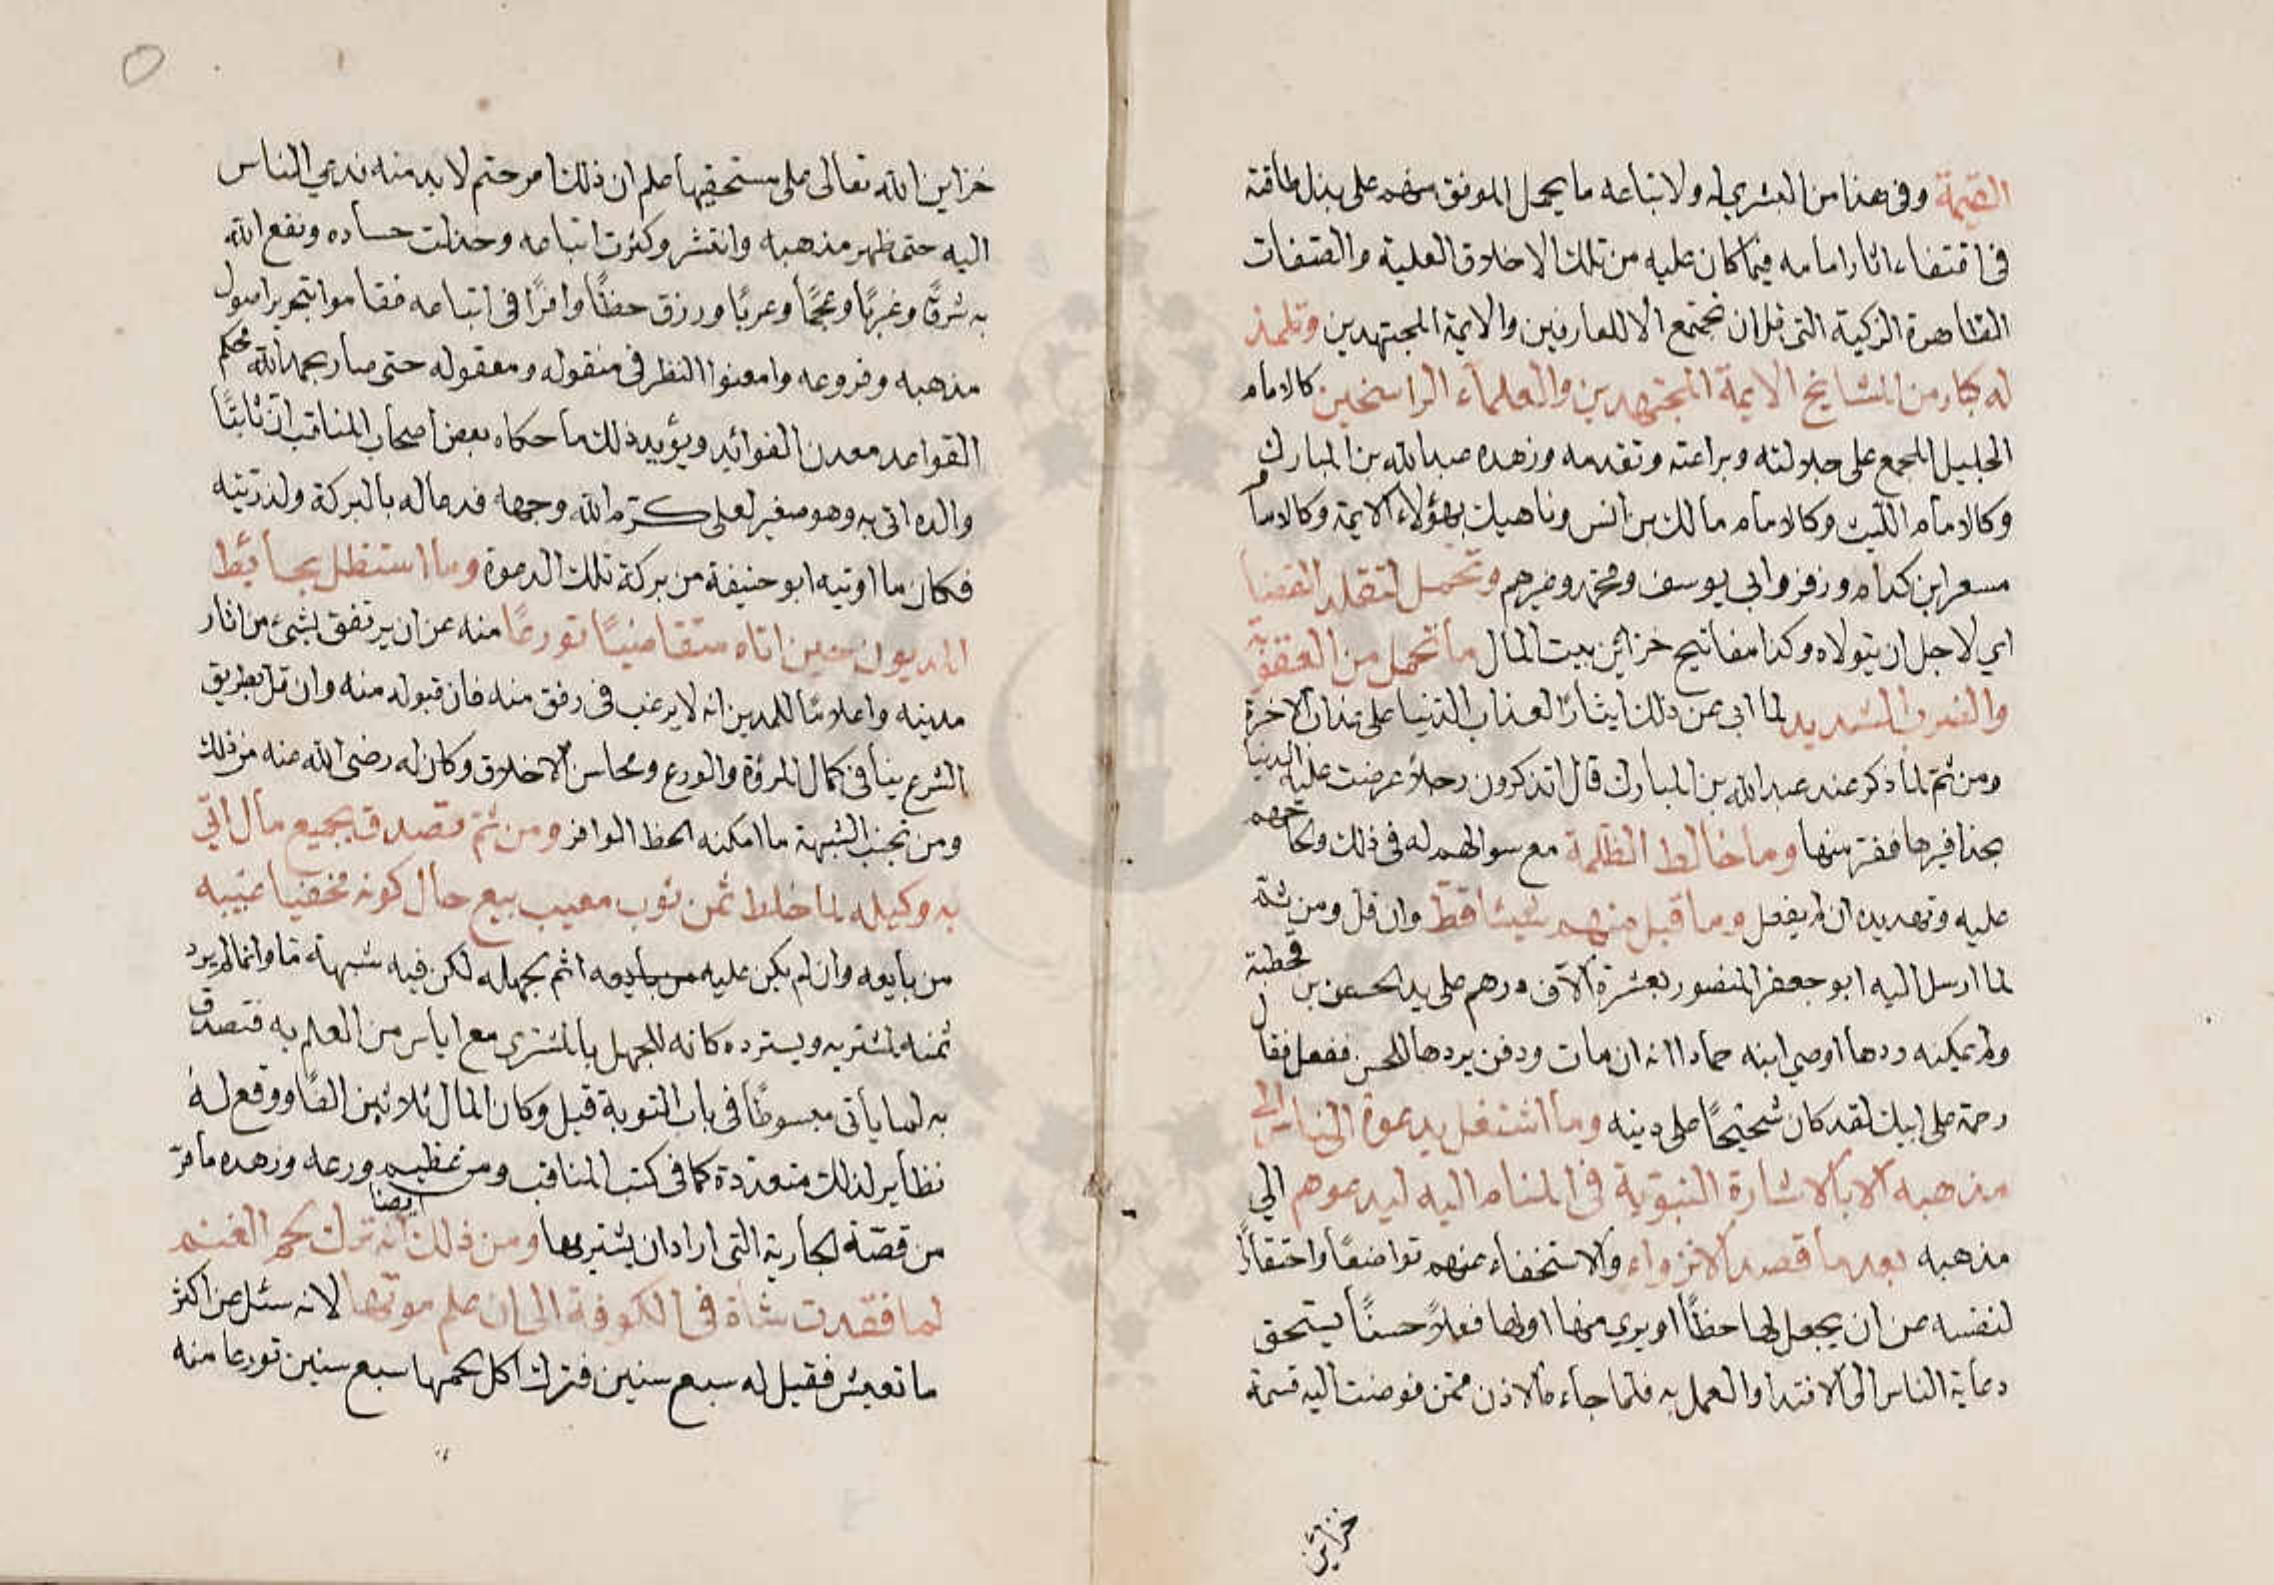 القيمة وفى هذا من البشري له ولاتباعه ما يحمل الموفق منهم على بذل طاقته
فى اقتفاء اثار امامه فيما كان عليه من تلك الاخلاق العلية والصفات
الظاهرة الزكية التى قل ان تجتمع الا للعارفين والايمة المجتهدين وتلمذ
له كبار من المشايخ الايمة المجتهدين والعلماء الراسخين كالامام
الجليل المجمع على جلالته وبراعته وتقدمه وزهده عبدالله بن المبارك
وكالامام الليث وكالامام مالك بن انس وناهيك بهؤلاء الايمة وكالامام
مسعر ابن كدام وزفر وابى يوسف ومحمد وغيرهم وتحمل لتقلد القضاء
اي لاجل ان يتولاه وكذا مفاتيح خزائن بيت المال ما تحمل من العقوبة
والضرب الشديد لما ابى عن ذلك ايثارًا لعذاب الدنيا على عذاب الاخرة
ومن ثم لما ذكر عند عبدالله بن المبارك قال اتذكرون رجلاً عرضت عليه الدنيا
بحذافيرها ففر منها وما خالط الظلمة مع سوالهم له فى ذلك والحاحهم
عليه وتهديده ان لم يفعل وما قبل منهم شيئا قط وان قل ومن ثمة
لما ارسل اليه ابو جعفر المنصور بعشرة الآف درهم على يد الحسن بن قحطبة
ولم يمكنه ردها اوصي ابنه حمادا انه ان مات ودفن يردها للحسن ففعل فقال
رحمة على ابيك لقد كان شحيحًا على دينه وما اشتغل بدعوة الناس الى
مذهبه الا بالاشارة النبوية فى المنام اليه ليدعوهم الي
مذهبه بعدما قصد الانزواء والاستخفاء عنهم تواضعًا واحتقارًا
لنفسه عن ان يجعل لها حظًا او يري منها اولها فعلاً حسنًا يستحق
دعاية الناس الى الاقتدا والعمل به فلما جاء الاذن ممن فوضت اليه قسمة
خزائن
خزاين الله تعالى على مستحقيها علم ان ذلك امر حتم لا بد منه فدعي الناس
اليه حتى ظهر مذهبه وانتشر وكثرت اتباعه وخذلت حساده ونفع الله
به شرقًا وغربًا وعجمًا وعربًا ورزق حظًا وافرًا فى اتباعه فقاموا بتحرير اصول
مذهبه وفروعه وامعنوا النظر فى منقوله ومعقوله حتى صار بحمدالله محكم
القواعد معدن الفوائد ويؤيد ذلك ما حكاه بعض اصحاب المناقب ان ثابتًا
والده اتى به وهو صغير لعلى كرّم الله وجهه فدعا له بالبركة ولذريته
فكان ما اوتيه ابو حنيفة من بركة تلك الدعوة وما استظل بحائط
المديون حين اتاه متقاضيًا تورعًا منه عن ان يرتفق بشئ من اثار
مدينه واعلامًا للمدين انه لا يرغب فى رفق منه فان قبوله منه وان قل بطريق
الشرع ينافى كمال المروة والورع ومحاسن الاخلاق وكان له رضى الله عنه من ذلك
ومن تجنب الشبهة ما امكنه الحظ الوافر ومن ثم تصدق بجميع مال اتي
به وكيله لما خلط ثمن ثوب معيب بيع حال كونه مخفيا عيبه
من بايعه وان لم يكن عليه من بايعه اثم بجهله لكن فيه شبهة ما وانما لم يرد
ثمنه لمشتريه ويسترده كانه للجهل بالمشترى مع اياس من العلم به فتصدق
به لما يأتى مبسوطًا فى باب التوبة قيل وكان المال ثلاثين الفًا ووقع له
نظاير لذلك متعددة كما فى كتب المناقب ومن عظيم ورعه وزهده ما مرّ
ايضا
من قصّة الجارية التى اراد ان يشتريها ومن ذلك انه ترك لحم الغنم
لما فقدت شاة فى الكوفة الى ان علم موتها لانه سئل عن اكثر
ما تعيش فقيل له سبع سنين فترك اكل لحمها سبع سنين تورعا منه